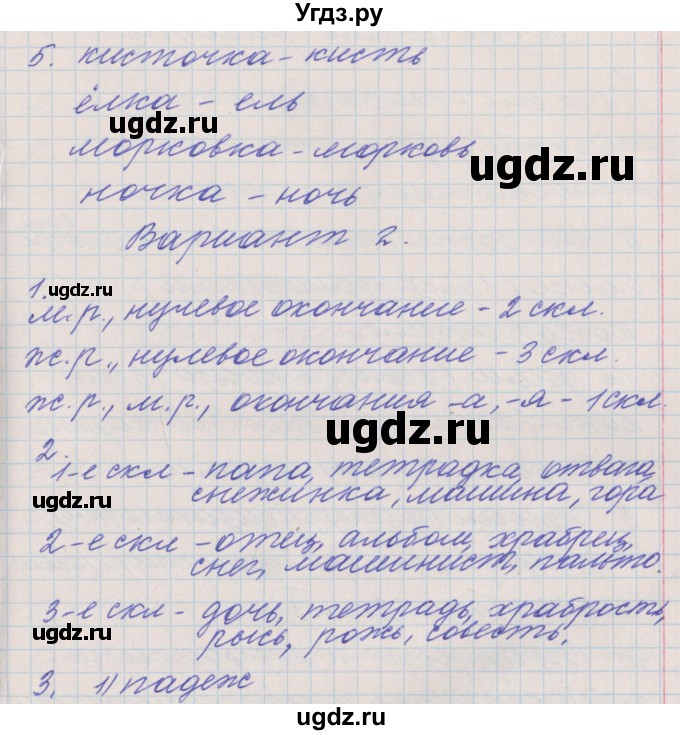 Угдз.ру
5. кисточка – кисть
ёлка – ель
ugdz.ru
морковка – морковь
ugdz.ru
ночка – ночь
Вариант 2.
1. ugdz.ru
м.р., нулевое окончание – 2 скл.
ж.р., нулевое окончание – 3 скл.
ж.р., м.р., окончания -а, -я – 1 скл.
ugdz.ru
2.
1-е скл – папа, тетрадка, отвага,
снежинка, машина, гора
ugdz.ru
2-е скл – отец, альбом, храбрец,
снег, машинист, пальто.
ugdz.ru
3-е скл – дочь, тетрадь, храбрость,
рысь, рожь, совесть.
ugdz.ru
3. 1) падеж
ugdz.ru
ugdz.ru